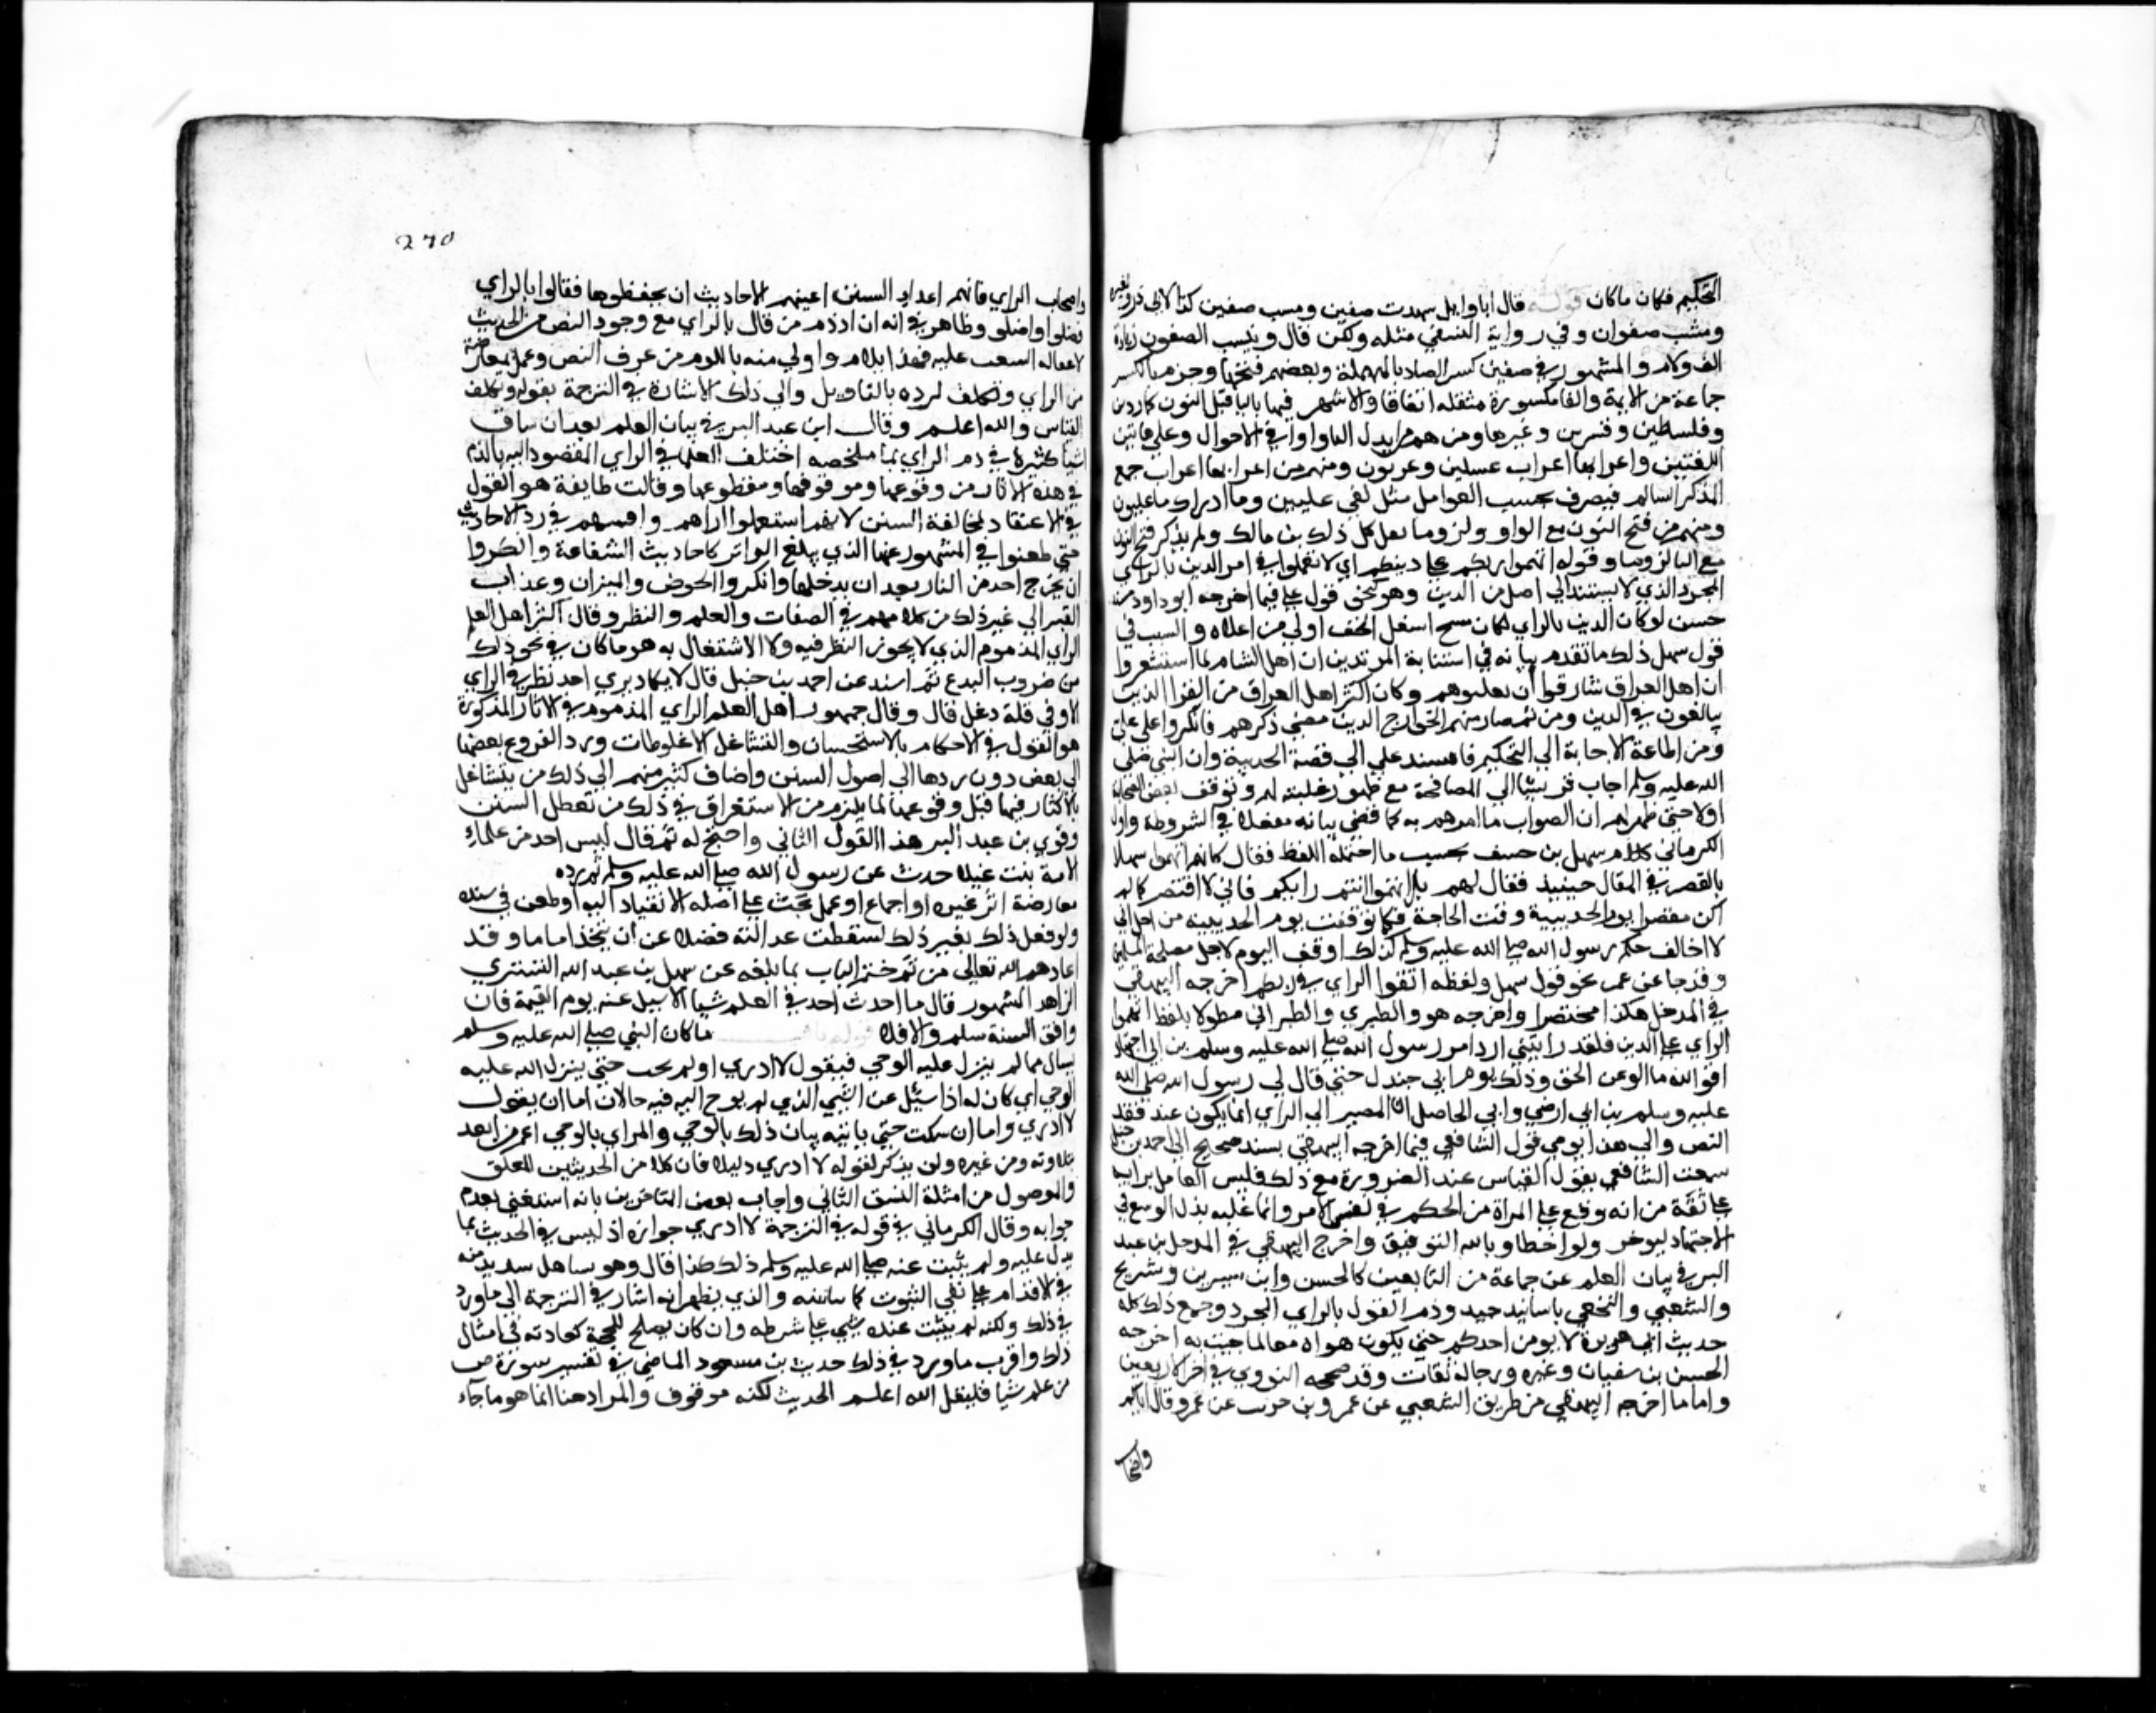 التحكيم فكان ما كان قوله قال ابا وايل شهدت صفين وبيست صفين كذا لابي ذر ولغيره
وبيست صفون وفي رواية النسفي مثله ولكن قال وبيست الصفون بزيادة
الف ولام والمشهور في صفين كسر الصاد المهملة وبعضهم فتحها وجزم بالكسر
جماعة من الايمة والفا مكسورة مثقلة اتفاقا والاشهر فيها بالياء قبل النون كماردين
وفلسطين وقنسرين وغيرها ومنهم من ابدل الياء واوا في الاحوال وعلى هاتين
اللغتين واعرابها اعراب غسلين وعربون ومنهم من اعربها اعراب جمع
المذكر السالم فيصرف بحسب العوامل مثل لفي عليين وما ادراك ما عليون
ومنهم من فتح النون مع الواو ولزوما نقل كل ذلك بن مالك ولم يذكر فتح النون
مع اليا لزوما وقوله اتهموا رايكم على دينكم اي لا تعملوا في امر الدين بالراي
المجرد الذي لا يستند الى اصل من الدين وهو كنحو قول علي فيما اخرجه ابو داود بسند
حسن لو كان الدين بالراي لكان مسح اسفل الخف اولى من اعلاه والسبب في
قول سهل ذلك ما تقدم بيانه في استتابة المرتدين ان اهل الشام لما استشعروا
ان اهل العراق شارفوا ان يغلبوهم وكان اكثر اهل العراق من القرا الذين
يبالغون في الدين ومن ثم صار منهم الخوارج الذين مضى ذكرهم فانكروا على علي
ومن اطاعه الاجابة الى التحكيم فاستند علي الى قصة الحديبية وان النبي صلى
الله عليه وسلم اجاب قريشا الى المصالحة مع ظهور غلبته لهم وتوقف بعض الصحابة
اولا حتى ظهر لهم ان الصواب ما امرهم به كما مضى بيانه مفصلا في الشروط واول
الكرماني كلام سهل بن حنيف بحسب ما احتمله اللفظ فقال كانهم اتهموا سهلا
بالتقصير في القتال حينيذ فقال لهم بل اتهموا انتم رايكم فاني لا اقصر كما لم
اكن مقصرا يوم الحديبية وقت الحاجة فكما توقفت يوم الحديبية من اجل اني
لا اخالف حكم رسول الله صلى الله عليه وسلم كذلك اوقف اليوم لاجل مصلحة المسلمين
وقد جا عن عمر نحو قول سهل ولفظه اتقوا الراي في دينكم اخرجه البيهقي
في المدخل هكذا مختصرا واخرجه هو والطبري والطبراني مطولا بلفظ اتهموا
الراي على الدين فلقد رايتني ارد امر رسول الله صلى الله عليه وسلم براي اجتهادا
فوالله ما الو عن الحق وذلك يوم ابي جندل حتى قال لي رسول الله صلى الله
عليه وسلم ارضى وابى الحاصل ان المصير الى الراي انما يكون عند فقد
النص والى هذا يومي قول الشافعي فيما اخرجه البيهقي بسند صحيح الى احمد بن حنبل
سمعت الشافعي يقول القياس عند الضرورة مع ذلك فليس العامل برايه
على ثقة من انه وقع على المراد من الحكم في نفس الامر وانما عليه بذل الوسع في
الاجتهاد ليوجر ولو اخطا وبالله التوفيق واخرج البيهقي في المدخل بن عبد
البر في بيان العلم عن جماعة من التابعين كالحسن وابن سيرين وشريح
والشعبي والنخعي باسانيد جيد وذم القول بالراي المجرد وجمع ذلك كله
حديث ابي هريرة لا يومن احدكم حتى يكون هواه تبعا لما جيت به اخرجه
الحسن بن سفيان وغيره ورجاله ثقات وقد صححه النووي في اخر الاربعين
واما ما اخرجه البيهقي من طريق الشعبي عن عمرو بن حريث عن عمر قال اياكم
واصحاب
270
واصحاب الراي فانهم اعداء السنن اعيتهم الاحاديث ان يحفظوها فقالوا بالراي
فضلوا واضلوا وظاهر في انه اراد ذم من قال بالراي مع وجود النص من الحديث
لاغفاله التنقيب عليه فهذا يلام واولى منه باللوم من عرف النص وعمل بما عارضه
من الراي وتكلف لرده بالتاويل والى ذلك الاشارة في الترجمة بقوله وتكلف
القياس والله اعلم وقال ابن عبد البر في بيان العلم بعد ان ساق
اشيا كثيرة في ذم الراي بما ملخصه اختلف العلما في الراي المقصود اليه بالذم
في هذه الاثار مرفوعها وموقوفها ومقطوعها وقالت طايفة هو القول
في الاعتقاد لمخالفة السنن لانهم استعملوا اراهم واقيستهم في رد الاحاديث
حتى طعنوا في المشهور عنها الذي يبلغ التواتر كاحاديث الشفاعة وانكروا
ان يخرج احد من النار بعد ان يدخلها وانكروا الحوض والميزان وعذاب
القبر الى غير ذلك من كلامهم في الصفات والعلم والنظر وقال اكثر اهل العلم
الراي المذموم الذي لا يجوز النظر فيه ولا الاشتغال به هو ما كان في نحو ذلك
من ضروب البدع ثم اسند عن احمد بن حنبل قال لا يكاد يرى احد نظر في الراي
الا وفي قلبه دغل قال وقال جمهور اهل العلم الراي المذموم في الاثار المذكورة
هو القول في الاحكام بالاستحسان والتشاغل الاغلوطات ورد الفروع بعضها
الى بعض دون ردها الى اصول السنن واضاف كثير منهم الى ذلك من يتشاغل
بالاكثار فيها قبل وقوعها لما يلزم من الاستغراق في ذلك من تعطل السنن
وقوى بن عبد البر هذا القول الثاني واحتج له ثم قال ليس احد من علماء
الامة يثبت عنده حديث عن رسول الله صلى الله عليه وسلم ثم رده
معارضة اثر غيره او اجماع او عمل يجب على اصله الانقياد اليه او طعن في سنده
ولو فعل ذلك بغير ذلك لسقطت عدالته فضلا عن ان يتخذ اماما وقد
اعاذهم الله تعالى من ثم ختم الباب بما بلغه عن سهل بن عبد الله التستري
الزاهد المشهور قال ما احدث احد في العلم شيا الا سيل عنه يوم القيمة فان
وافق السنة سلم والا فلا قوله باب ما كان النبي صلى الله عليه وسلم
يسال مما لم ينزل عليه الوحي فيقول لا ادري او لم يجب حتى ينزل الله عليه
الوحي اي كان له اذا سئل عن الشي الذي لم يوح اليه فيه حالان اما ان يقول
لا ادري واما ان يسكت حتى ياتيه بيان ذلك بالوحي والمراي بالوحي اعم من المتعبد
بتلاوته ومن غيره ولن يذكر لقوله لا ادري دليلا فان كلا من الحديثين المعلق
والموصول من امثلة الشق الثاني واجاب بعض المتاخرين بانه استغنى بعدم
جوابه وقال الكرماني في قوله في الترجمة لا ادري حزازة اذ ليس في الحديث ما
يدل عليه ولم يثبت عنه صلى الله عليه وسلم ذلك كذا قال وهو تساهل شديد منه
في الاقدام على نفي الثبوت كما سابينه والذي يظهر انه اشار في الترجمة الى ما ورد
في ذلك ولكنه لم يثبت عنده شي على شرطه وان كان يصلح للحجة كعادته في امثال
ذلك واقرب ما ورد في ذلك حديث بن مسعود الماضي في تفسير سورة ص
من علم شيا فليقل الله اعلم الحديث لكنه موقوف والمراد هنا انما هو ما جاء